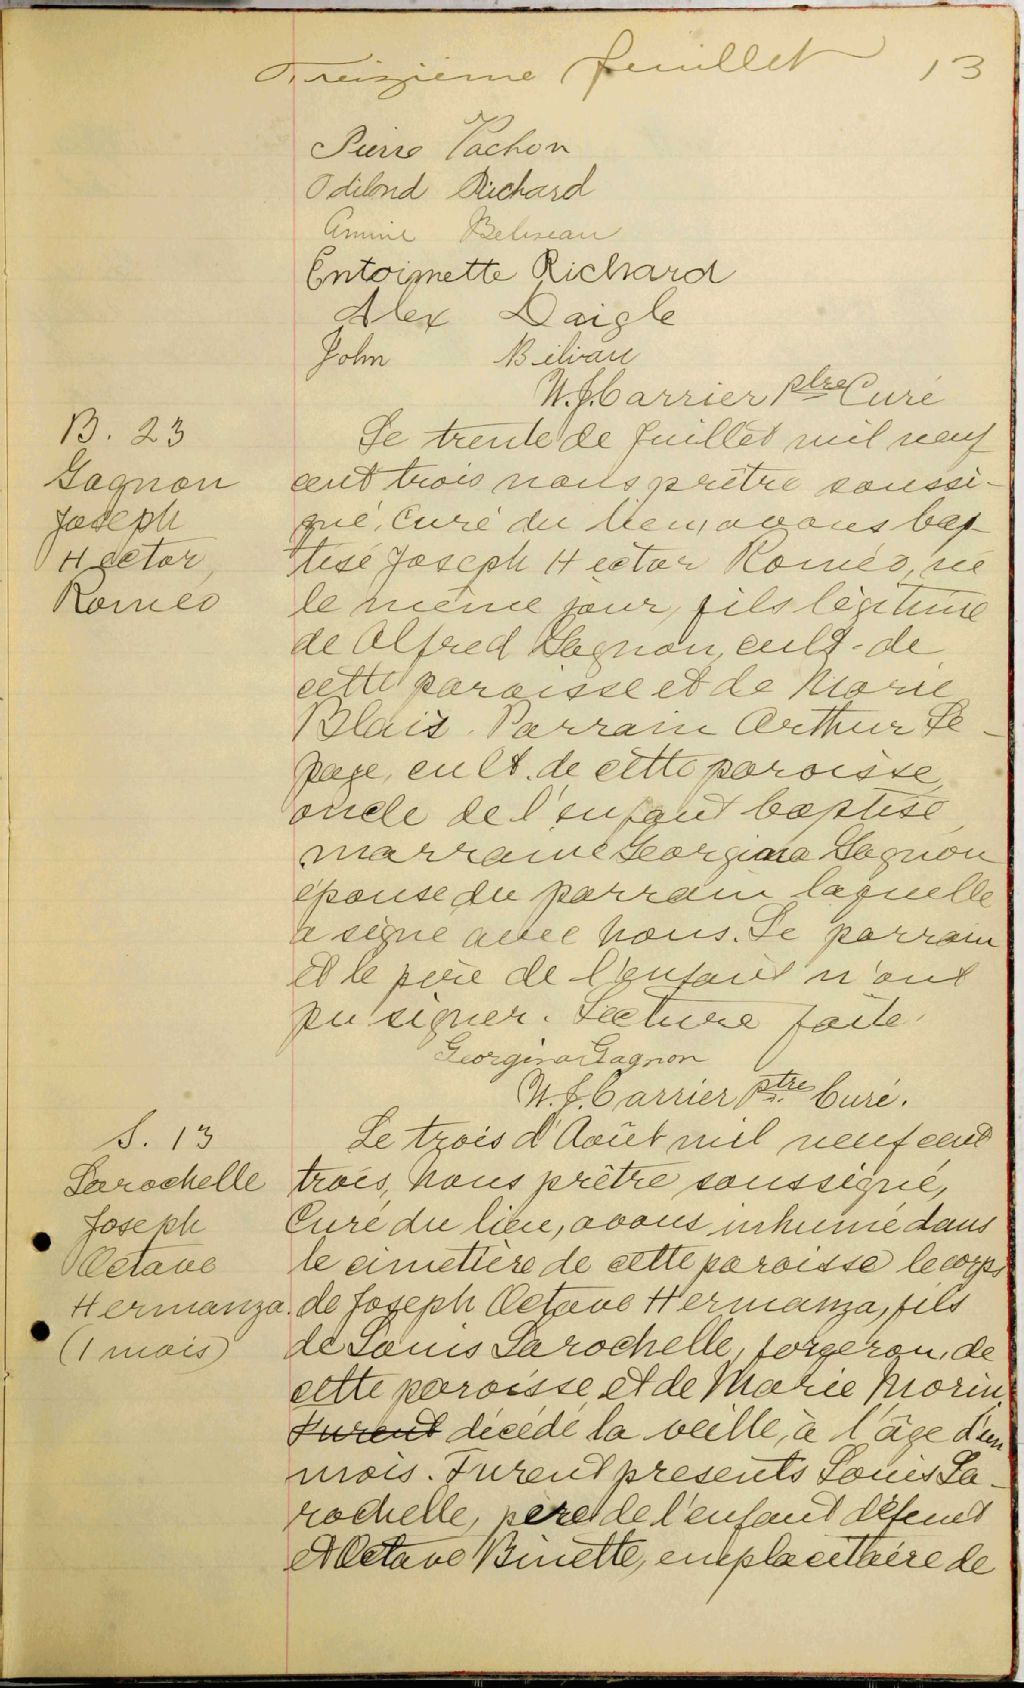 Treizième feuillet 13
Pierre Vachon
Odilond Richard
Entoinette Richard
Alex Daigle
John
W.J. Carrier Ptre Curé
B. 23
Gagnon
Joseph
Hector,
Roméo
Le trente de Juillet mil neuf
cent trois nous prêtre soussi-
gné, Curé du lieu, avons bap-
tisé Joseph Hector Roméo, né
le même jour, fils légitime
de Alfred Gagnon, cult. de
cette paroisse et de Marie
Blais. Parrain Arthur Le-
page, cult. de cette paroisse,
oncle de l'enfant baptisé,
marraine Georgina Gagnon
épouse du parrain laquelle
a signé avec nous. Le parrain
et le père de l'enfant n'ont
pu signer. Lecture faite.
Georgina Gagnon
W.J. Carrier Ptre Curé.
S. 13
Larochelle
Joseph
Octave
Hermanza.
(1 mois)
Le trois d'Août mil neuf cent
trois, nous prêtre soussigné,
Curé du lieu, avons inhumé dans
le cimetière de cette paroisse le corps
de Joseph Octave Hermanza, fils
de Louis Larochelle, forgeron, de
cette paroisse et de Marie Morin,
Furent décédé la veille, à l'âge d'un
mois. Furent presents Louis La-
rochelle, père de l'enfant défunt
et Octave Binette, emplacitaire de